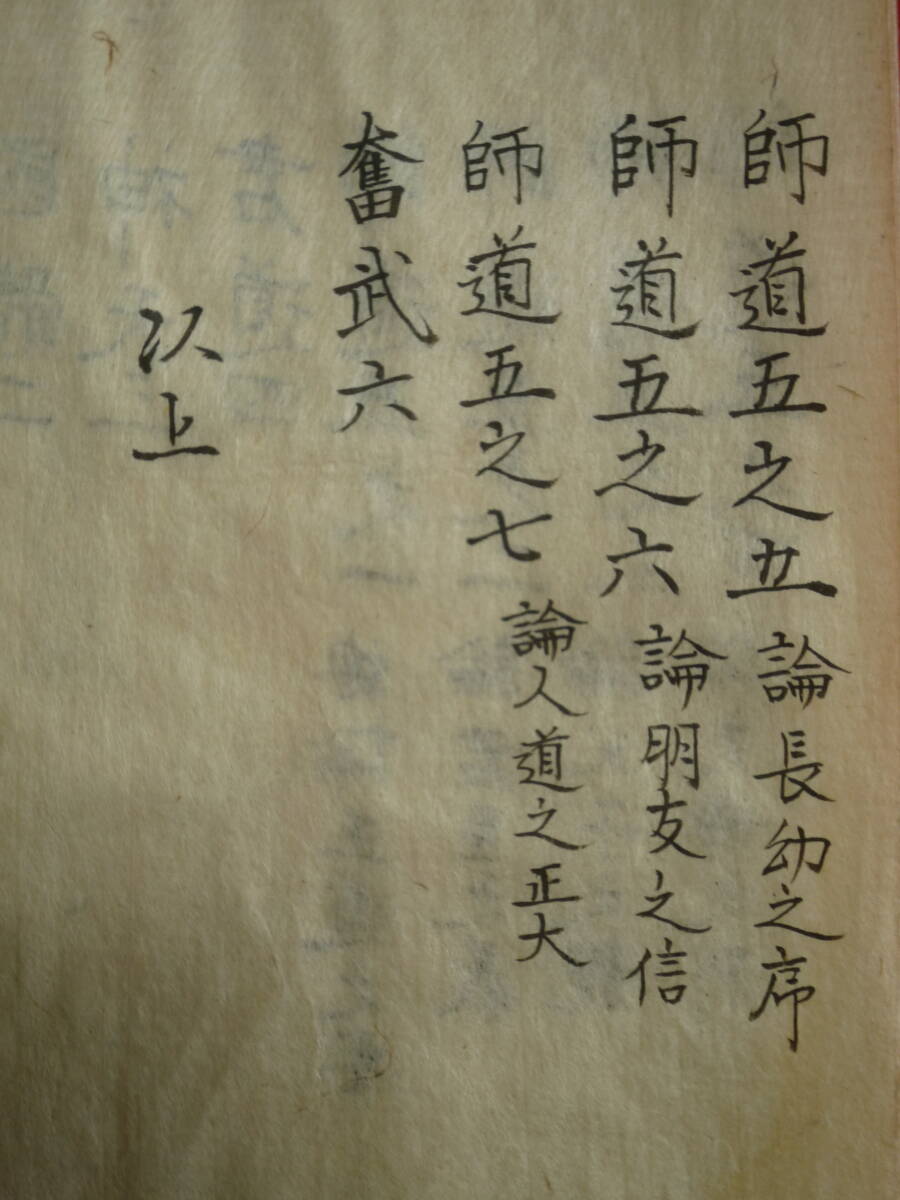 師道五之五 論長幼之序
師道五之六 論明友之信
師道五之七 論人道之正大
奮武六
以上